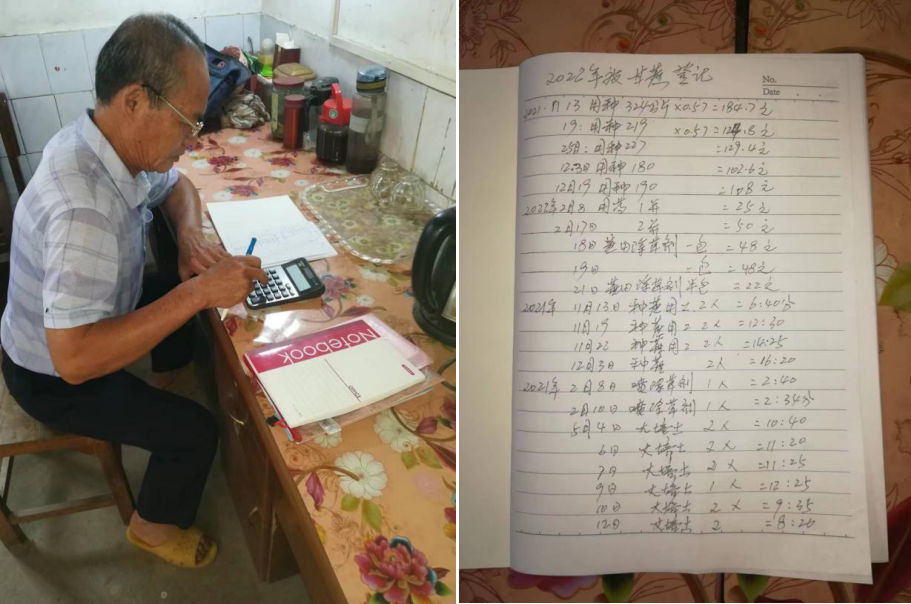 Notebook
2022年报甘蔗登记
No.
Date
2021.11.13 用种324公斤×0.57=184.7元
19:用种219 ×0.57=124.8元
25日:用种227 =129.4元
12.3日用种180 =102.6元
12月19用种190 =108元
2022年2月8 用药1斤 =25元
2月17日 2斤 =50元
18日 除草剂一包 =48元
19日 =包 =48元
21日 除草剂 =22元
2021年 11月13日种蔗用工2人=6:40分
11月19 种蔗用工2人=12:30
11月22 种蔗用工2人=16:25
12月3日 种蔗 2人=16:20
2021年 2月8日 喷除草剂 1人=2:40
2月10日 喷除草剂 1人=2:34分
5月4日 大培土 2人=10:40
6日 大培土 2人=11:20
7日 大培土 2人=11:25
9日 大培土 1人=12:25
10日 大培土 2人=9:35
12日 大培土 2 =8:20